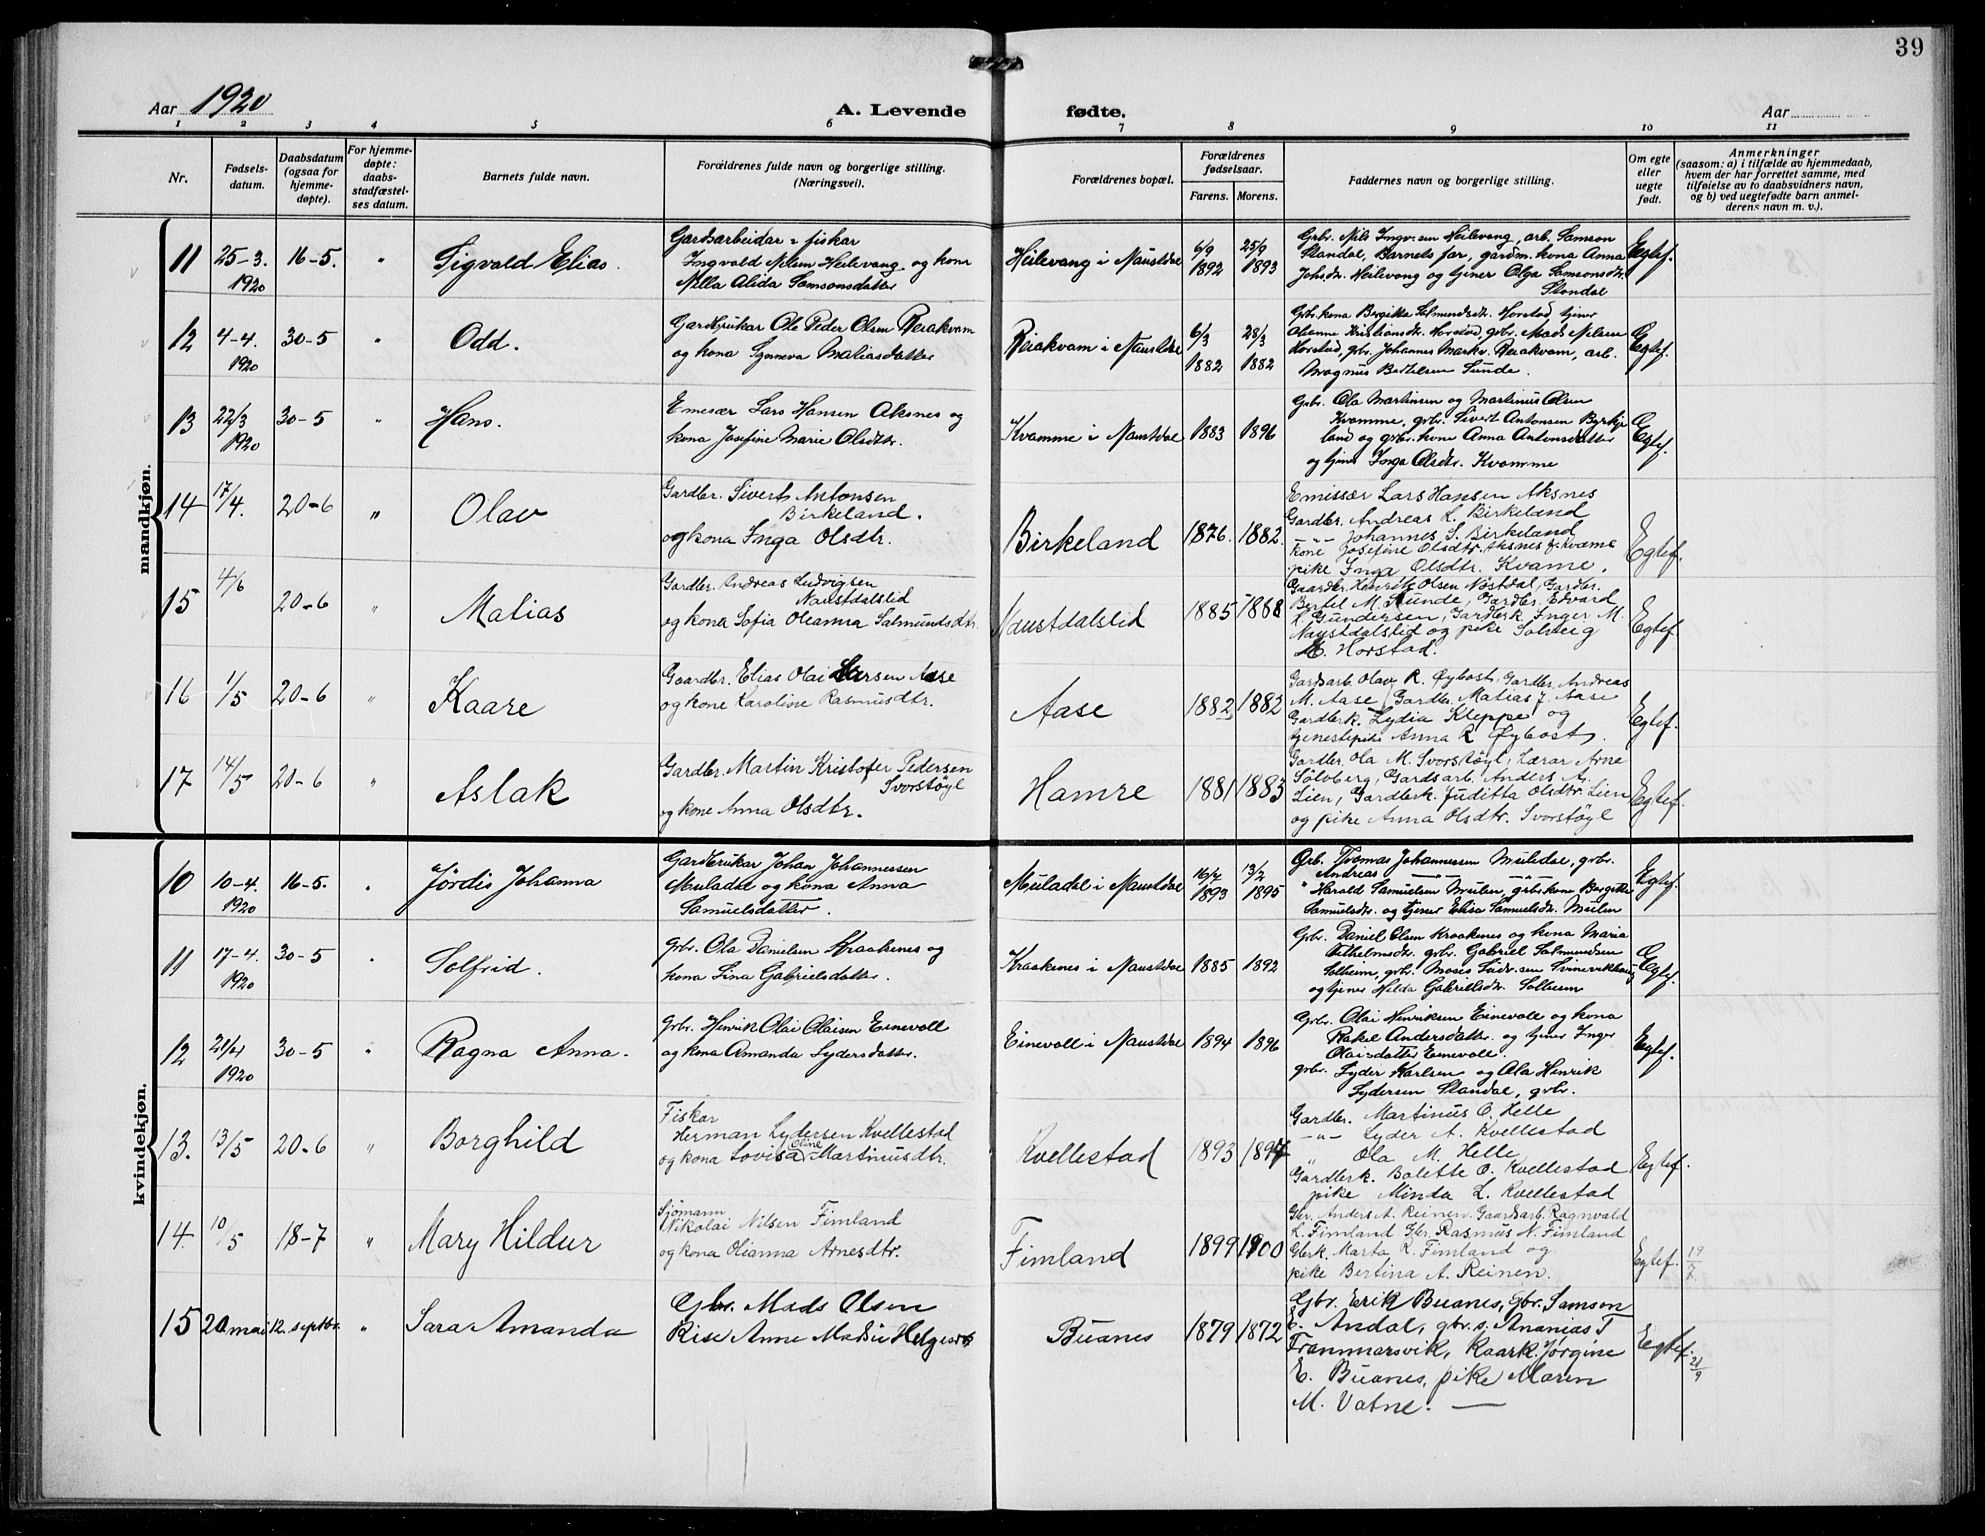 39
Aar 1920
A. Levende fødte.
Aar
1 2 3 4 5 6 7 8 9 10 11
Nr.
Fødsels-
datum.
Daabsdatum
(ogsaa for
hjemme-
døpte).
For hjemme-
døpte:
daabs-
stadfæstel-
ses datum.
Barnets fulde navn.
Forældrenes fulde navn og borgerlige stilling.
(Næringsvei).
Forældrenes bopæl.
Forældrenes
fødselsaar.
Farens. Morens.
Faddernes navn og borgerlige stilling.
Om egte
eller
uegte
født.
Anmerkninger
(saasom: a) i tilfælde av hjemmedaab,
hvem der har forrettet samme, med
tilføielse av to daabsvidners navn,
og b) ved uegtefødte barn anmel-
derens navn m. v.).
mandkjøn.
11 25-3. 1920 16-5. " Sigvald Elias.
Gardsarbeidar & fiskar
Ingvald Nilsen Heilevang og kona
Nilla Alida Samsonsdatter
Heilevang i Naustdal 6/9 1892 25/9 1893
Grbr. Nils Ingv.sen Heilevang, arb. Samson
Standal, Barnets far, gardm. kona Anna
Johsdtr. Heilevang og tjener Olga Samsonsdtr.
Standal
Egtef.
12 4-4. 1920 30-5 " Odd.
Gardbrukar Ole Peder Olsen Reiakvam
og kona Synneva Matiasdatter
Reiakvam i Naustdal 6/3 1882 28/3 1882
Grbr. kona Bergitte Salmundsdt. Horstad, tjener
Olianne Kristiansdt. Horstad, grbr. Mads Nilsen
Horstad, grbr. Johannes Mark. Reiakvam, arb.
Magnus Bertelsen Sunde.
Egtef.
13 22/3 1920 30-5 " Hans.
Emesær Lars Hansen Aksnes og
kona Josefine Marie Olsdtr.
Kvamme i Naustdal 1883 1896
Grbr. Ola Martinsen og Martinus Olsen
Kvamme, grbr. Sivert Antonsen Byrkje
land og grbr. kone Anna Antonsdatter
og tjener Inga Olsdtr. Kvamme
Egtef.
14 17/4. 20-6 " Olav
Gardbr. Sivert Antonsen
Birkeland.
og kona Inga Olsdtr.
Birkeland 1876. 1882.
Emissær Lars Hansen Aksnes
Gardbr. Andreas L. Birkeland
-"- Johannes S. Birkeland
kone Josefine Olsdtr. Aksnes f. Kvame
pike Inga Olsdtr. Kvame.
Egtef.
15 4/6 20-6 " Matias
Gardbr. Andreas Ludvigsen
Naustdalslid
og kona Sofia Oleanna Salmundsdtr.
Naustdalslid 1885 1888
Gaardbr. Henrik Olsen Nøstdal, Gardbr.
Bertel M. Sunde, Gardbr. Edvard
L. Gundersen, Gardbrk. Inger M.
Naustdalslid og pike Solveig
M. Horstad.
Egtef.
16 1/5 20-6 " Kaare
Gaardbr. Elias Olai Larsen Aase
og kone Karoline Rasmusdtr.
Aase 1882 1882
Gardsarb. Olav R. Øybost, Gardbr. Andreas
M. Aase, Gardbr. Matias J. Aase
Gardbrk. Lydia Kleppe og
tjenestepike Anna R. Øybost.
Egtef.
17 14/5 20-6 " Aslak
Gardbr. Martin Kristofer Pedersen
Svorstøyl
og kone Anna Olsdtr.
Hamre 1881 1883
Gardbr. Ola M. Svorstøyl, Lærar Arne
Sølvberg, Gardsarb. Anders A.
Lien, Gardbrk. Juditta Olsdtr. Lien
og pike Anna Olsdtr. Svorstøyl
Egtef.
kvindekjøn.
10 10-4. 1920 16-5. " Jørdis Johanna
Gardbrukar Johan Johannessen
Muladal og kona Anna
Samuelsdatter.
Muladal i Naustdal 16/7 1893 13/2 1895
Grb. Tomas Johannessen Muledal, grbr.
Andreas -"- -"-
" Harald Samuelsen Meilen, grbr. kone Bergitte
Samuelsdtr. og tjener Elisa Samuelsdt. Meilen
Egtef.
11 17-4. 1920 30-5 " Solfrid.
grbr. Ola Danielsen Kraakenes og
kona Lina Gabrielsdatter.
Kraakenes i Naustdal 1885 1892
Grbr. Daniel Olsen Kraakenes og kona Maria
Vilhelmsdt. grbr. Gabriel Salmundsen
Solheim, grbr. Moses Sivr.sen Svinevikhaug
og tjener Hilda Gabrielsdt. Solheim
Egtef.
12 21/4 1920 30-5 " Ragna Anna.
Grbr. Hinrik Olai Olaisen Einevoll
og kona Amanda Lydersdatter.
Einevoll i Naustdal 1894 1896
Grbr. Olai Henriksen Einevoll og kona
Rakel Andersdatter og tjener Inger
Olaisdatter Einevoll.
grbr. Lyder Karlsen og Ola Henrik
Lydersen Standal, grbr.
Egtef.
13. 13/5 20-6 " Borghild
Fiskar
Herman Lydersen Kvellestad
og kona Lovisa Oline Martinusdtr.
Kvellestad 1893 1894
Gardbr. Martinus O. Helle
-"- Lyder A. Kvellestad
" Ola M. Helle
Gardbrk. Bolette O. Kvellestad
pike Minda L. Kvellestad
Egtef.
14. 10/5 18-7 " Mary Hildur
Sjømann
Nikolai Nilsen Fimland
og kona Olianna Arnesdtr.
Fimland 1899 1900
Gbr. Anders A. Reinen. Gaardsarb. Ragnvald
L. Fimland Gbr. Rasmus N. Fimland
Gbrk. Marta R. Fimland og
pike Bertina A. Reinen.
Egtef. 19/7
15 20 mai 12. septbr. " Sara Amanda
Gbr. Mads Olsen
Rise Anne Mathie Helgesen
Buanes 1879 1872
Gbr. Erik Buanes, Gbr. Samson
E. Andal, gbr. s. Ananias T
Frammarsvik, Kaark. Jørgine
E. Buanes, pike Maren
M. Vatne.
Egtef. 21/9